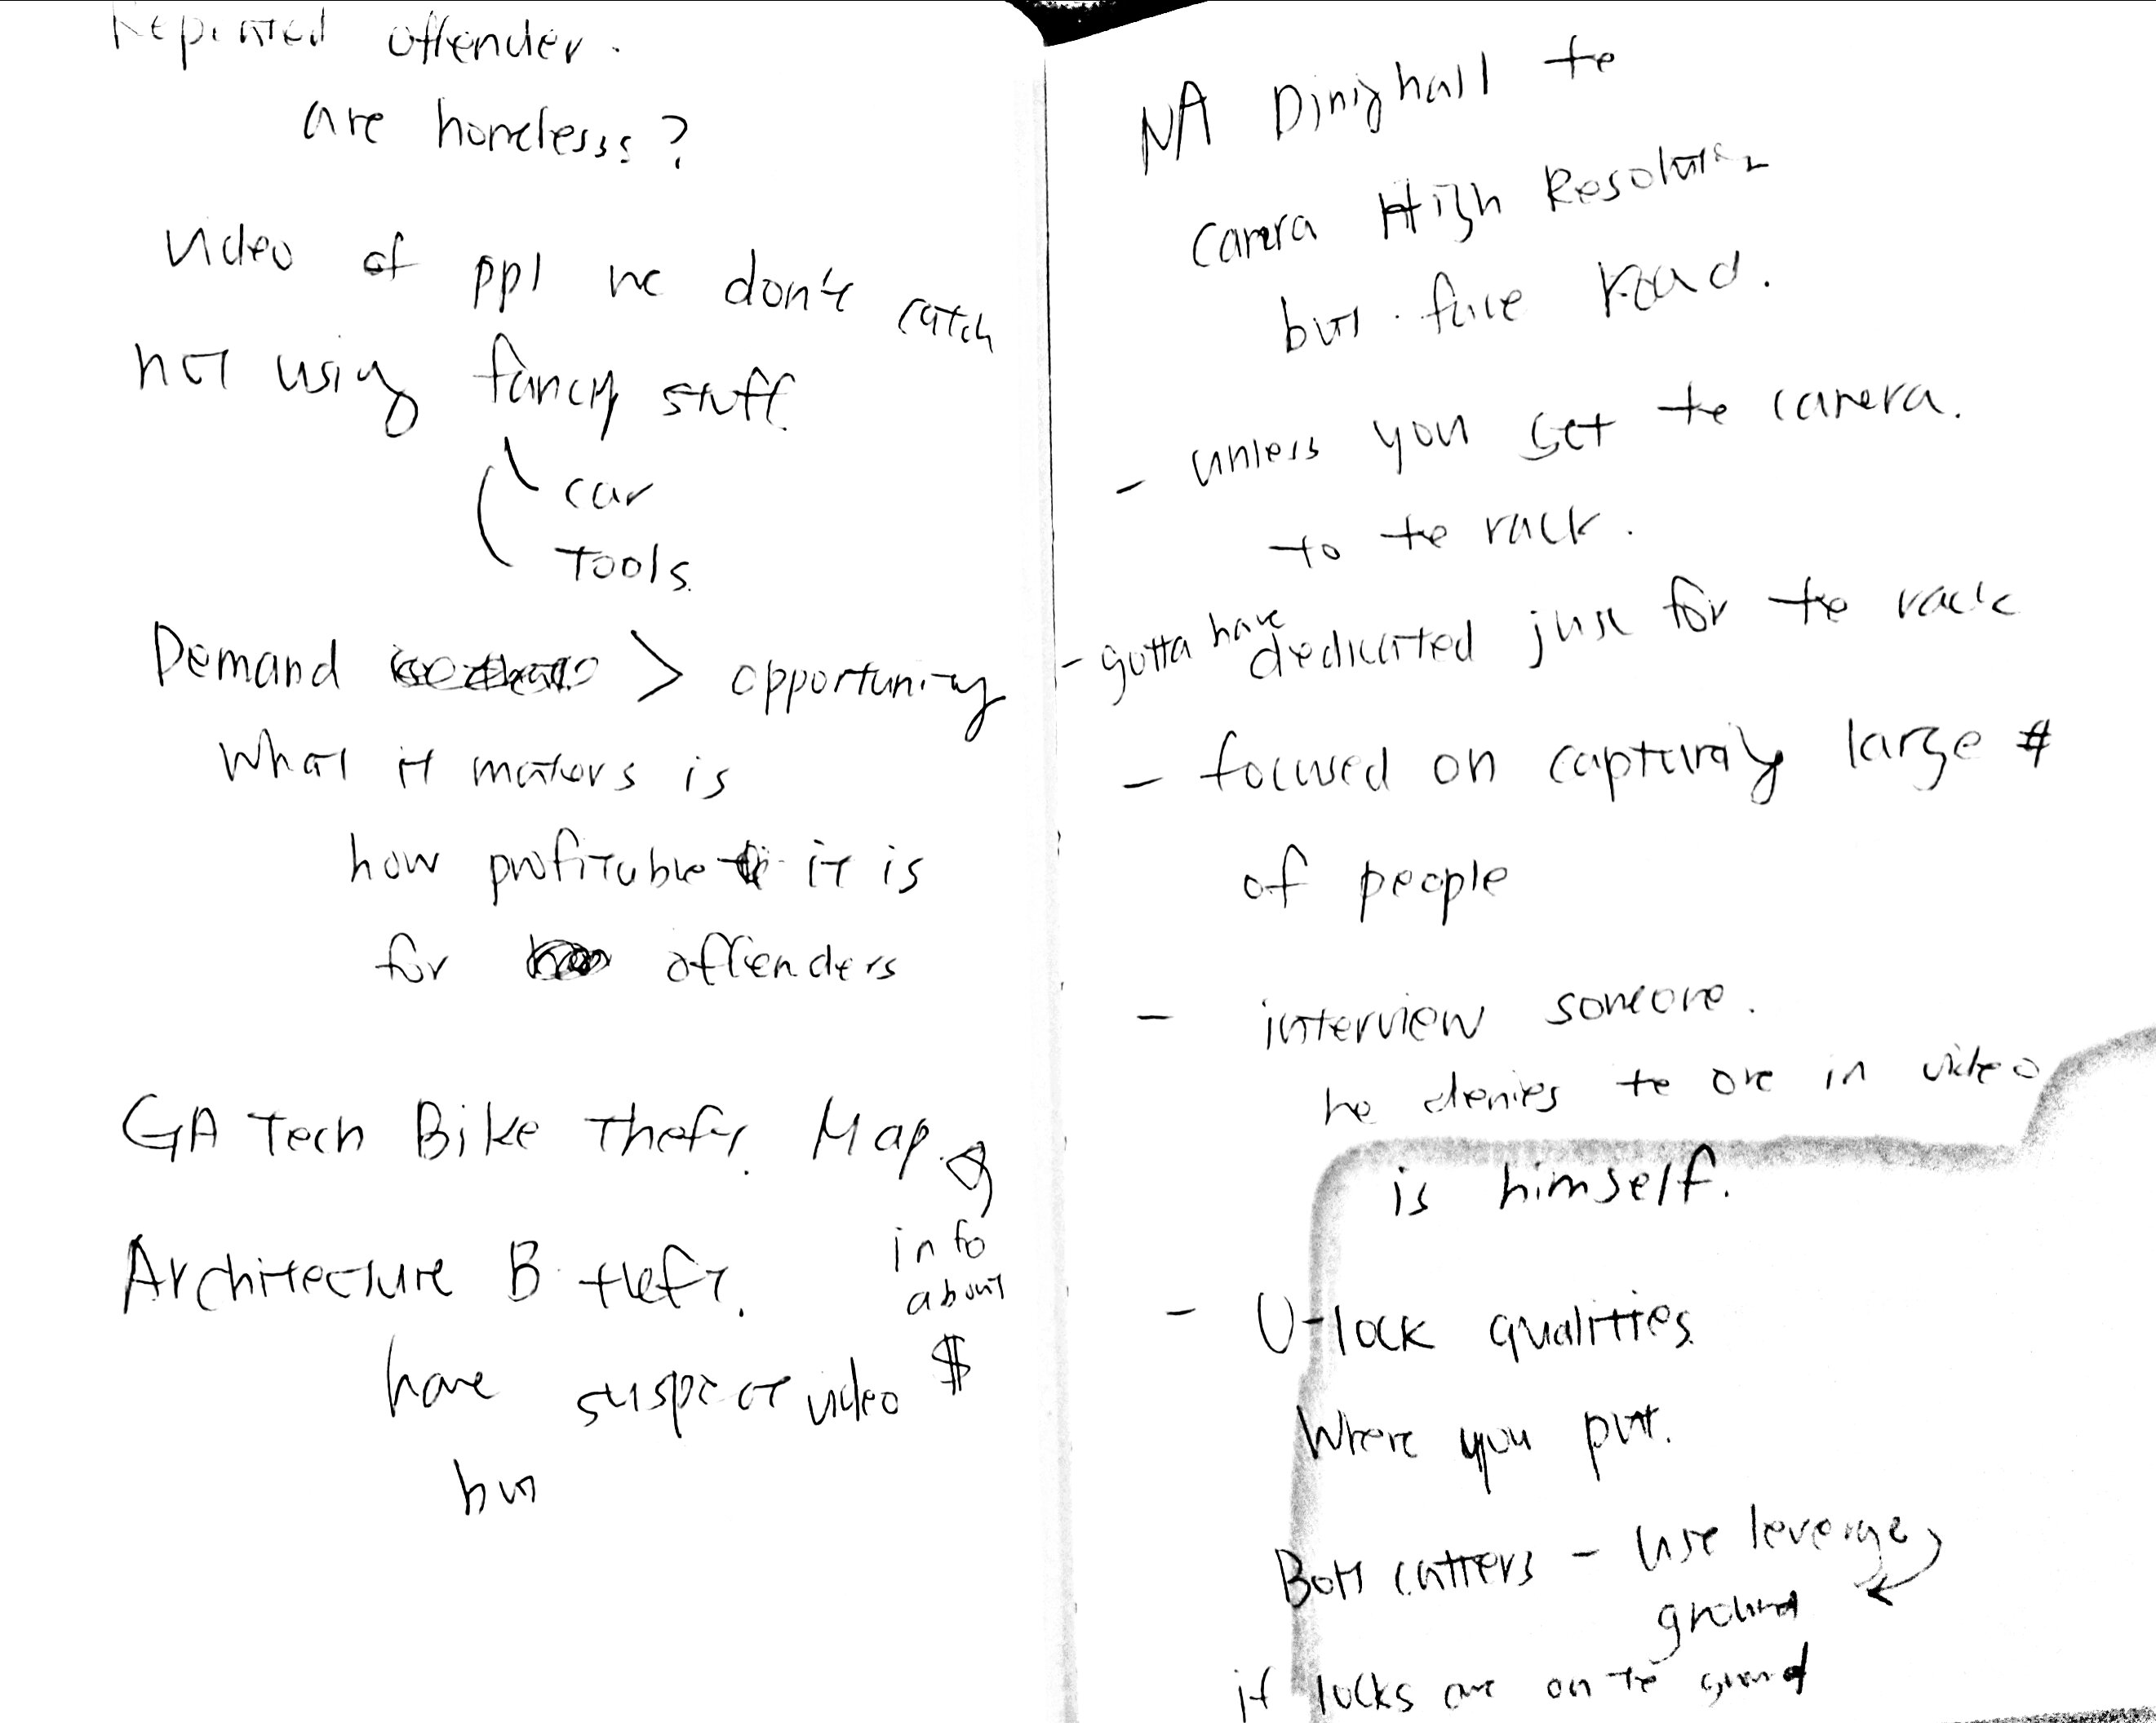 Repeated offender.
are homelesss?
video of ppl we don't catch
not using fancy stuff
car
Tools.
Demand > opportunity
What it maters is
how profitable it is
for offenders
GA Tech Bike Theft Map.
info
about
$
Architecture B. theft.
have suspect video
but
NA Dining hall te
Camera High Resolution
but face road.
- unless you set te camera.
to te rack.
- gotta have dedicated just for te rack
- focused on capturing large #
of people
- interview someone.
he denies te one in video
is himself.
- U-lock qualities
Where you put.
Bolt cutters - use leverage
ground
if locks are on te ground